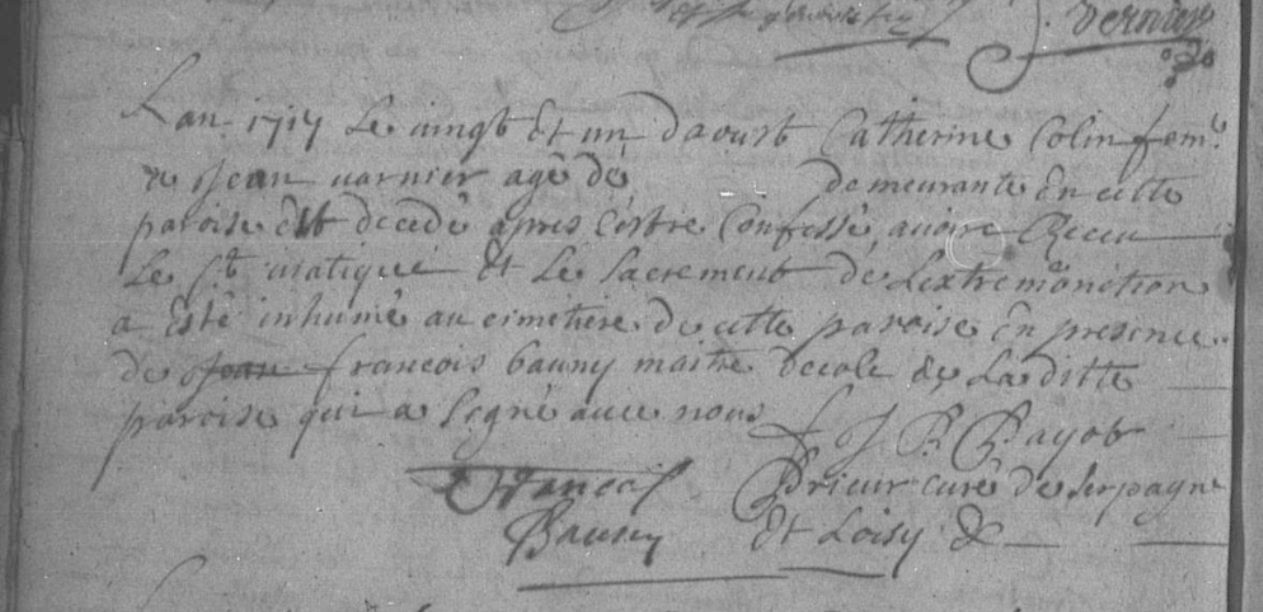 J. Vernier
Lan 1717 Le vingt Et un daoust Catherine Colin fem.
de Jean varnier agé dé demeurante En cette
paroise est decedé apres s'estre Confessé, avoire Receu
Le St viatique Et Le sacrement dé Lextremonction
a Esté inhumé au cimetiere de cette paroise En presence
de Jean francois bauny maitre decole de La ditte
paroise qui a signé avec nous f J B Bayot
francois Prieur curé de Serpagne
Bauny Et Loisy &